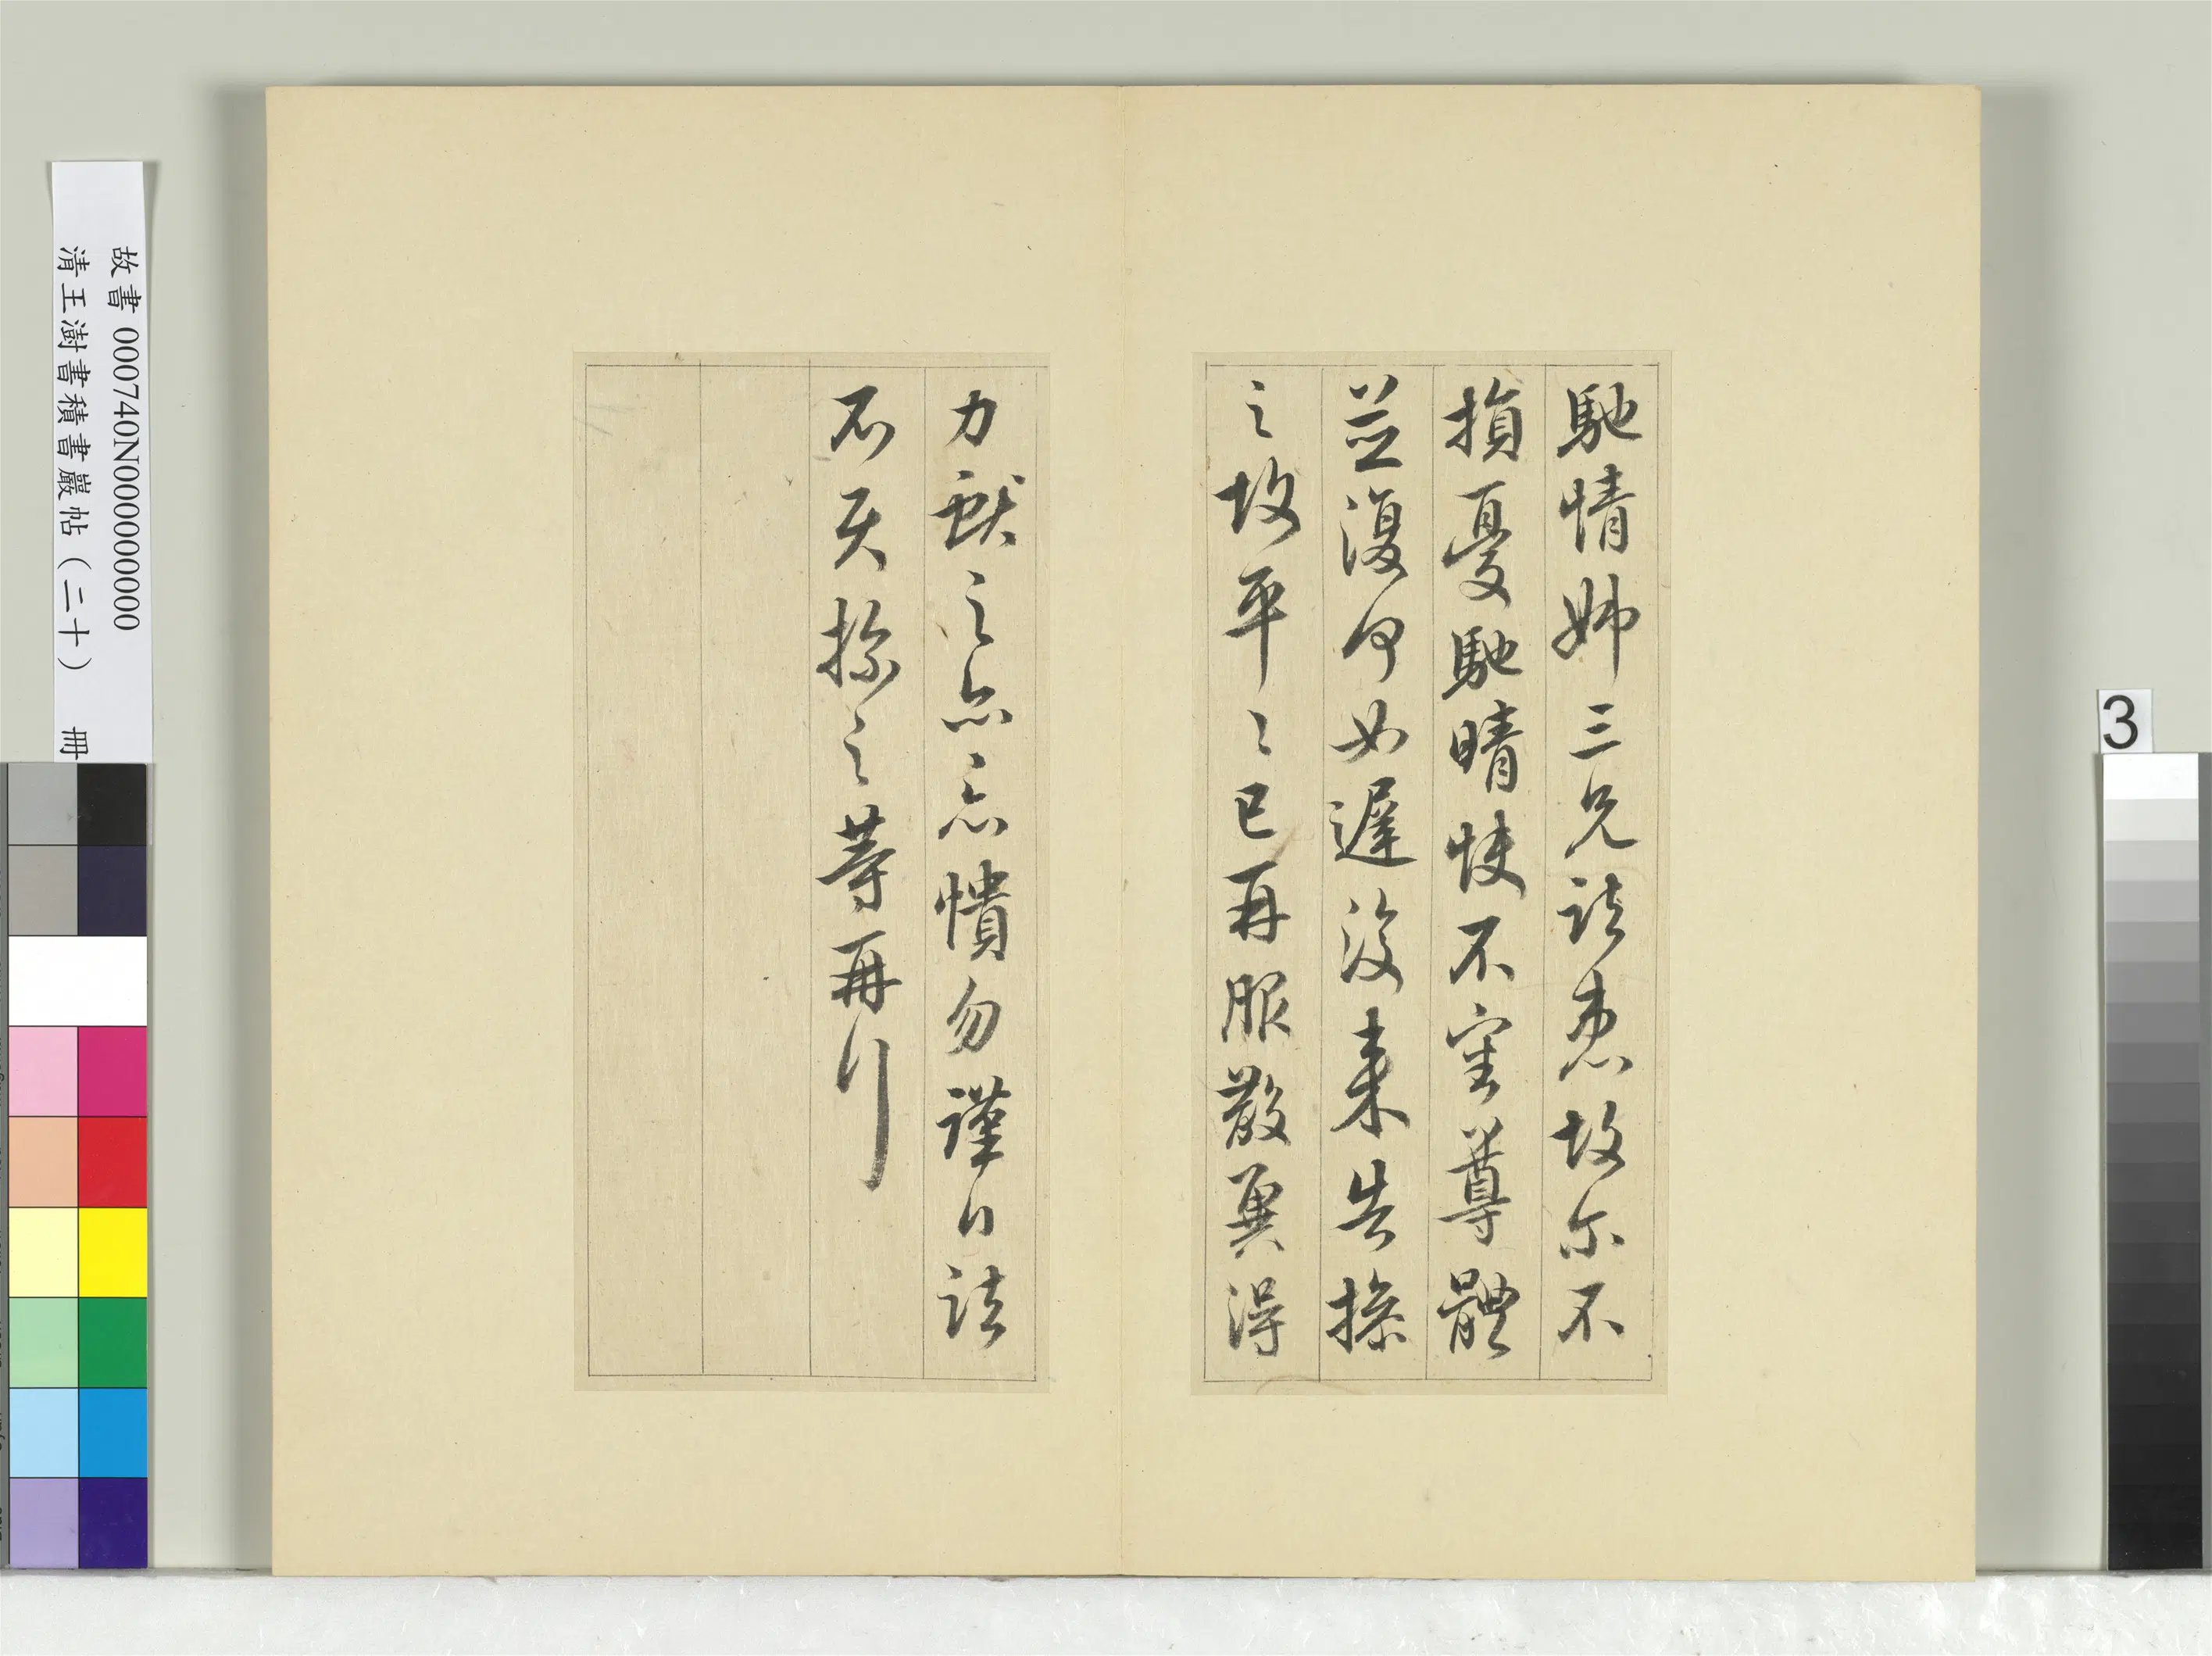 馳情姊三兄諸患故尓不
損憂馳晴快不審尊體
並復何如遲復來告操
之故平々已再服散冀得
力獻之亦憒勿謹白諸
不具操之等再拜
故書 000740N000000000
清王澍書積書巖帖（二十） 冊
3